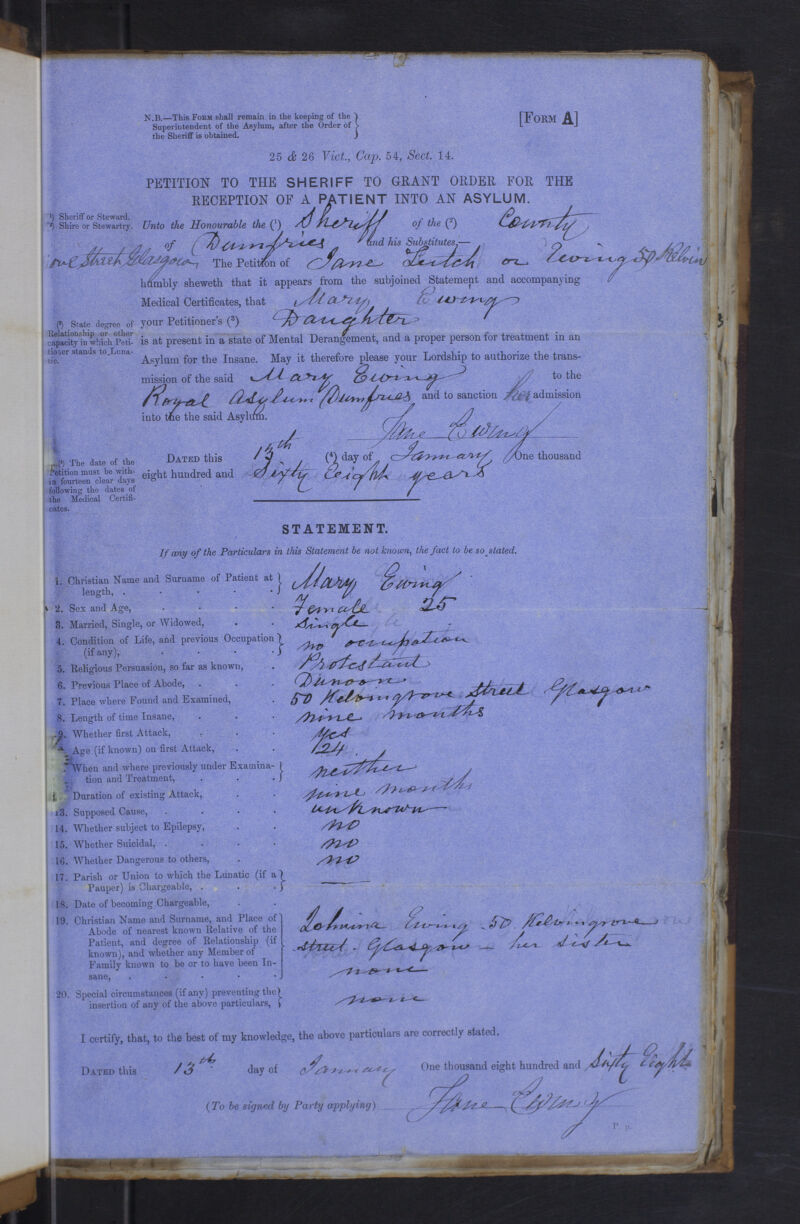 N.B.—This Form shall remain in the keeping of the
Superintendent of the Asylum, after the Order of
the Sheriff is obtained.
[Form A]
25 & 26 Vict., Cap. 54, Sect. 14.
PETITION TO THE SHERIFF TO GRANT ORDER FOR THE
RECEPTION OF A PATIENT INTO AN ASYLUM.
(1) Sheriff or Steward.
(2) Shire or Stewartry.
Unto the Honourable the (1) Sheriff of the (2) County
of Dumfries and his Substitutes,—
The Petition of Jane Leitch or Ewing 50 Kelvin
ove Street Glasgow
humbly sheweth that it appears from the subjoined Statement and accompanying
Medical Certificates, that Mary Ewing
(3) State degree of Relationship or other capacity in which Petitioner stands to Lunatic.
your Petitioner's (3) Daughter
is at present in a state of Mental Derangement, and a proper person for treatment in an
Asylum for the Insane. May it therefore please your Lordship to authorize the trans-
mission of the said Mary Ewing to the
Royal Asylum Dumfries and to sanction her admission
into the the said Asylum.
Jane Ewing
(4) The date of the Petition must be within fourteen clear days following the dates of the Medical Certificates.
Dated this 13th (4) day of January One thousand
eight hundred and Sixty Eight years
STATEMENT.
If any of the Particulars in this Statement be not known, the fact to be so stated.
1. Christian Name and Surname of Patient at length, . Mary Ewing
2. Sex and Age, Female 25
3. Married, Single, or Widowed, Single
4. Condition of Life, and previous Occupation (if any), no occupation
5. Religious Persuasion, so far as known, Protestant
6. Previous Place of Abode, Dunoon
7. Place where Found and Examined, 50 Kelvingrove Street Glasgow
8. Length of time Insane, nine months
9. Whether first Attack, Yes
Age (if known) on first Attack, 24
When and where previously under Examination and Treatment, neither
Duration of existing Attack, nine months
13. Supposed Cause, unknown
14. Whether subject to Epilepsy, no
15. Whether Suicidal, no
16. Whether Dangerous to others, no
17. Parish or Union to which the Lunatic (if a Pauper) is Chargeable,
18. Date of becoming Chargeable,
19. Christian Name and Surname, and Place of Abode of nearest known Relative of the Patient, and degree of Relationship (if known), and whether any Member of Family known to be or to have been Insane,
Ewing 50 Kelvingrove
street Glasgow her sister
none
20. Special circumstances (if any) preventing the insertion of any of the above particulars, none
I certify, that, to the best of my knowledge, the above particulars are correctly stated.
Dated this 13th day of January One thousand eight hundred and Sixty Eight
(To be signed by Party applying) Jane Ewing